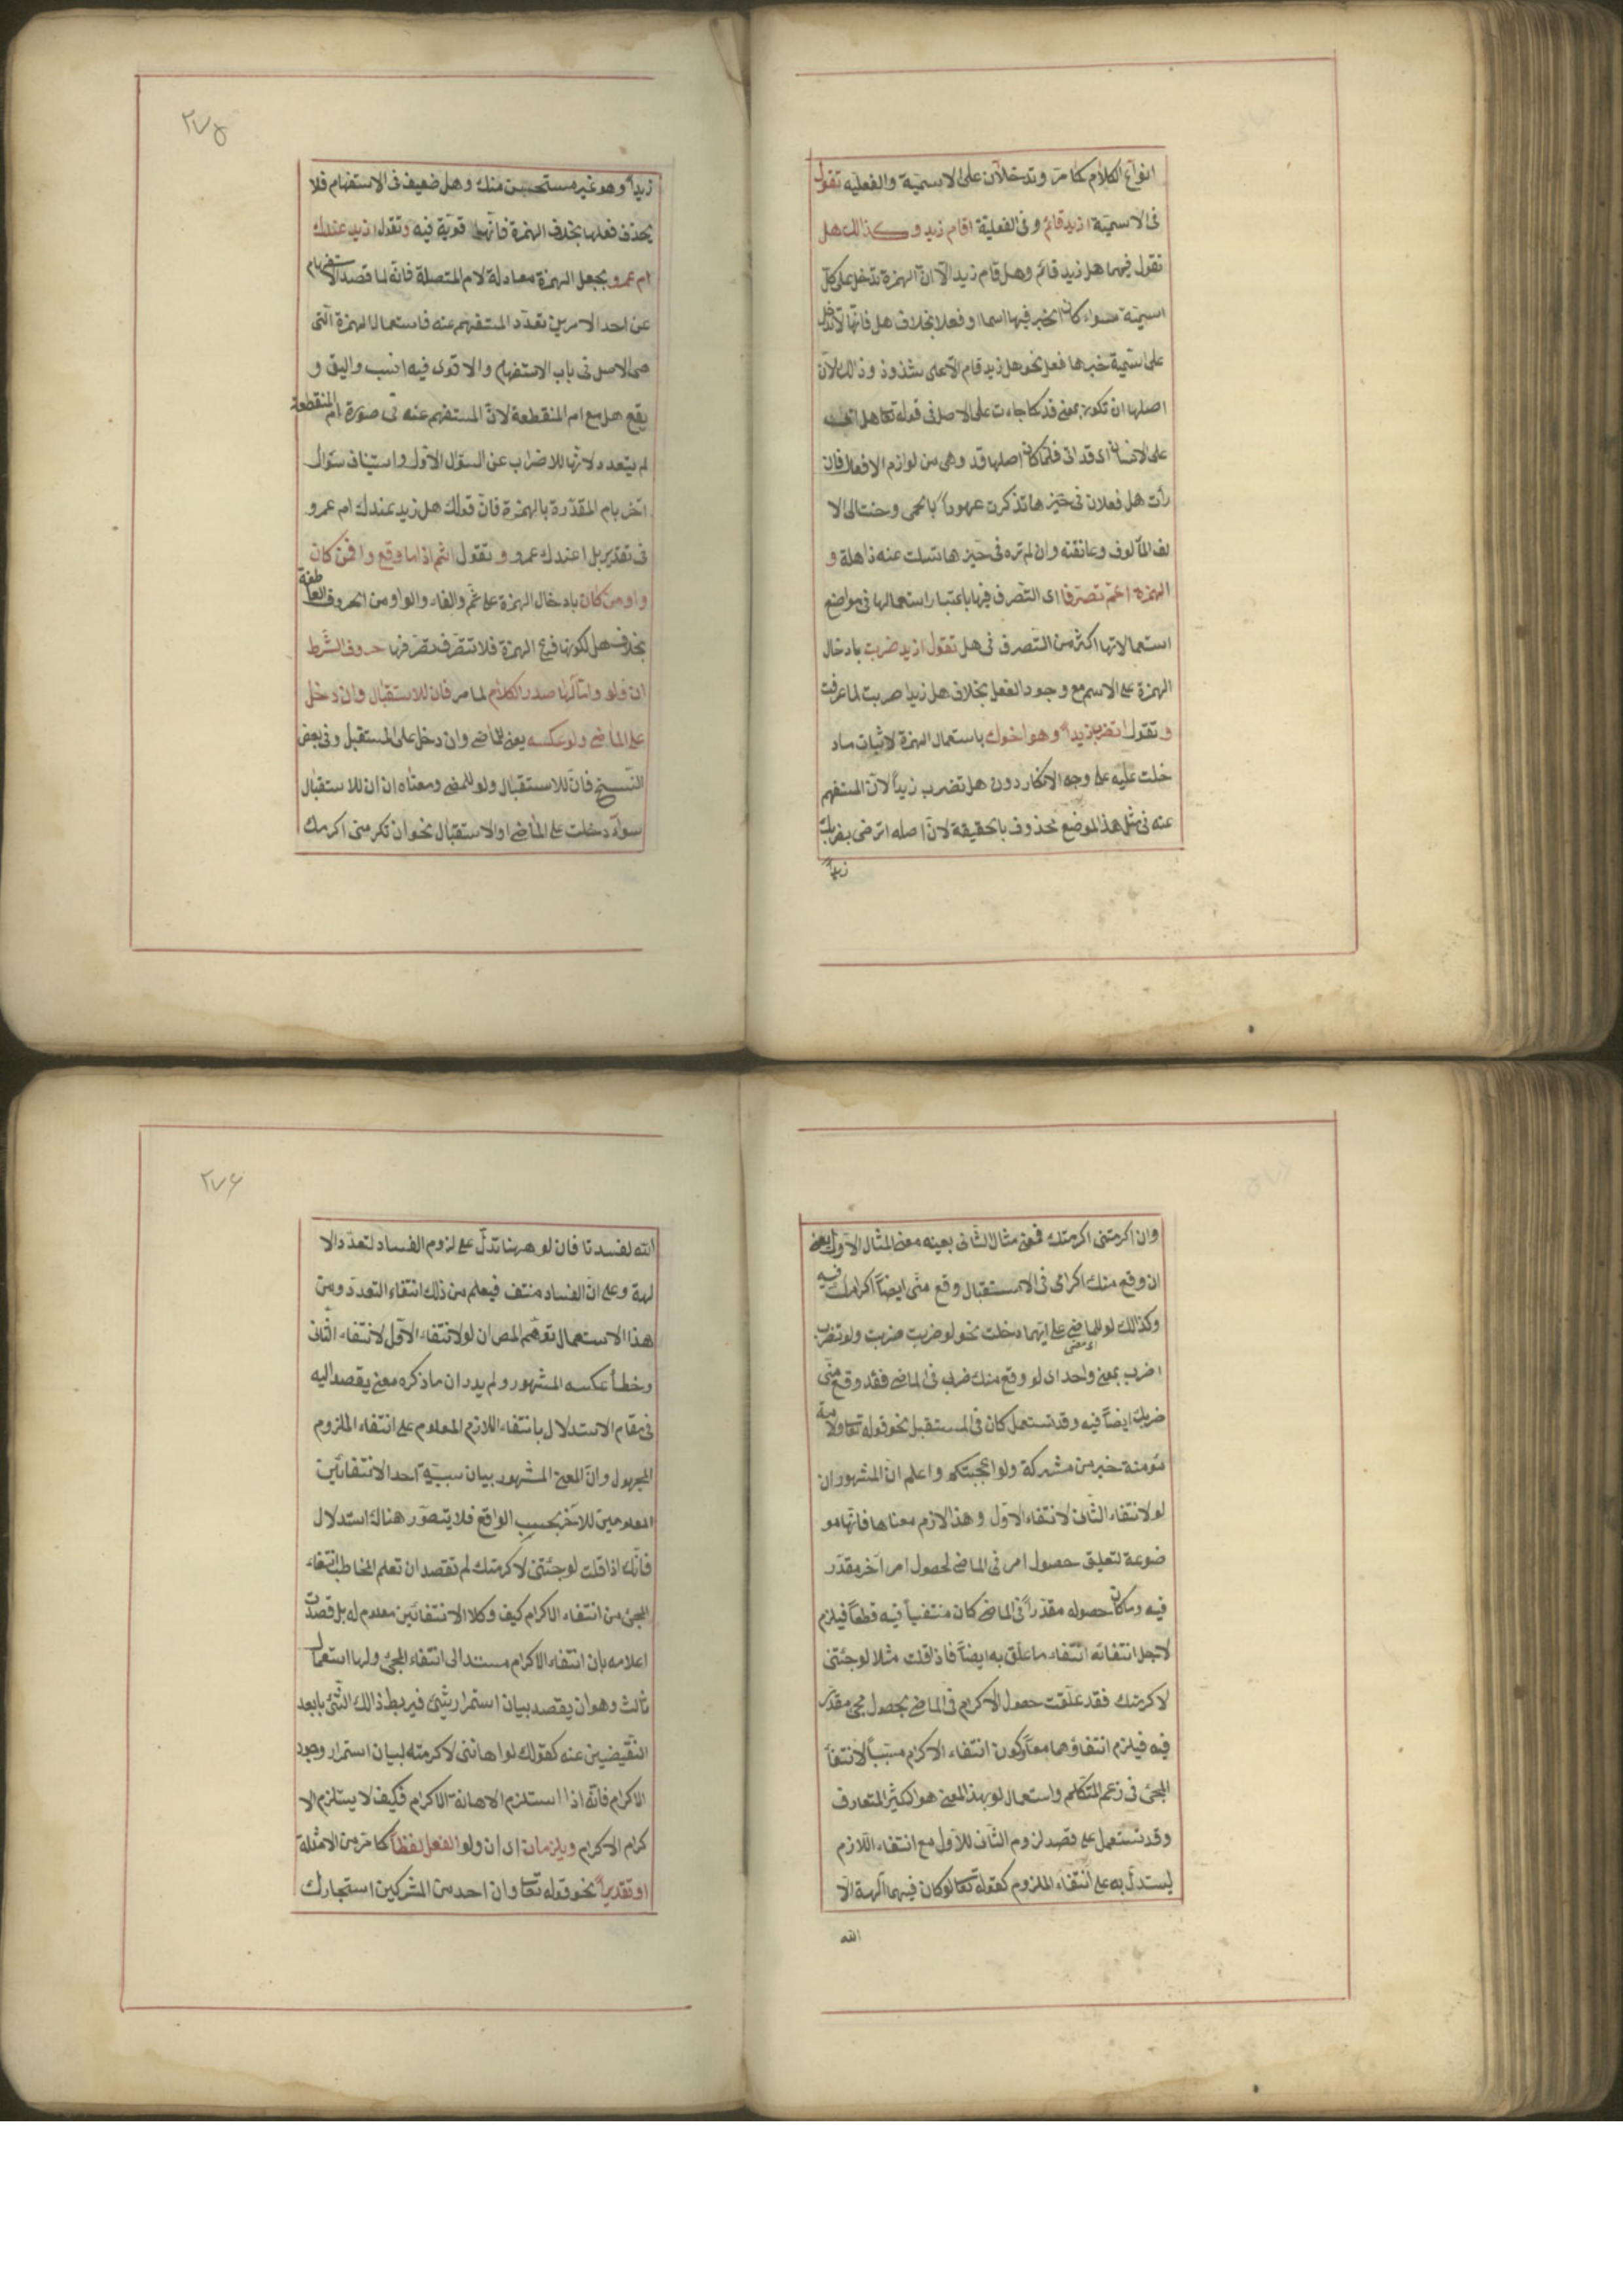 انواع الكلام كما مرّ وتدخلان على الاسمية والفعلية تقول
فى الاسميّة ازيد قائم وفى الفعلية اقام زيد وكذالك هل
تقول فيهما هل زيد قائم وهل قام زيد الّا انّ الهمزة تدخل على كلّ
اسميّة سواء كان الخبر فيها اسما او فعلا بخلاف هل فانّها لا تدخل
على اسميّة خبرها فعل نحو هل زيد قام الا على شذوذ وذالك لانّ
اصلها ان تكون بمعنى قد كما جاءت على الاصل فى قوله تعا هل اتى
على الانسان اى قد اتى فلمّا كان اصلها قد وهى من لوازم الافعال فان
رأت هل فعلان فى حيّزها تذكرت عهوداً بالحمى وحنت الى الا
لف المألوف وعانقته وان لم تره فى حيّزها تسلت عنه ذاهلة و
الهمزة اعمّ تصرّفا اى التصرف فيها باعتبار استعمالها فى مواضع
استعمالاتها اكثر من التصرف فى هل تقول ازيد ضربت بادخال
الهمزة على الاسم مع وجود الفعل بخلاف هل زيدا ضربت لما عرفت
و تقول اتضرب زيداً وهو اخوك باستعمال الهمزة لاثبات ماد
خلت عليه على وجه الانكار دون هل تضرب زيداً لانّ المستفهم
عنه فى مثل هذا الموضع محذوف بالحقيقة لانّ اصله اترضى بضربك
زيداً
٢٧٥
زيداً وهو غير مستحسن منك وهل ضعيف فى الاستفهام فلا
يحذف فعلها بخلاف الهمزة فانّها قويّة فيه وتقول ازيد عندك
ام عمرو بجعل الهمزة معادلة لام المتصلة فانّه لما قصد الاستفهام
عن احد الامرين تعدّد المستفهم عنه فاستعمال الهمزة التى
هى الاصل فى باب الاستفهام والاقوى فيه انسب واليق و
يقع هل مع ام المنقطعة لانّ المستفهم عنه فى صورة ام المنقطعة
لم يتعدد لانّها للاضراب عن السؤال الاول واستيناف سؤال
اخر بام المقدّرة بالهمزة فانّ قولك هل زيد عندك ام عمرو
فى تقدير بل اعندك عمرو و تقول اثم اذا ما وقع وافمن كان
واومن كان بادخال الهمزة على ثم والفاء والواو من الحروف العاطفة
بخلاف هل لكونها فرع الهمزة فلا تتصرّف تصرّفها حروف الشّرط
ان ولو وامّا لها صدر الكلام لما مر فان للاستقبال وان دخل
على الماضى ولو عكسه يعنى للماضى وان دخل على المستقبل وفى بعض
النّسخ فان للاستقبال ولو للمضى ومعناه ان ان للاستقبال
سوآء دخلت على الماضى او الاستقبال نحو ان تكرمنى اكرمك
وان اكرمتنى اكرمتك فمعنى مثال الثانى بعينه معنى المثال الاول يعنى
ان وقع منك اكرامى فى الاستقبال وقع منّى ايضاً اكرامك فيه
وكذالك لو للماضى على ايهما دخلت نحو لو ضربت ضربت ولو تضرب
اى مضى
اضرب بمعنى واحد اى لو وقع منك ضرب فى الماضى فقد وقع منّى
ضربك ايضاً فيه وقد تستعمل كان فى المستقبل نحو قوله تعا ولامة
مؤمنة خير من مشركة ولو اعجبتكم واعلم انّ المشهور ان
لو لانتفاء الثّانى لانتفاء الاول وهذا لازم معناها فانّها مو
ضوعة لتعليق حصول امر فى الماضى لحصول امر آخر مقدّر
فيه وما كان حصوله مقدّراً فى الماضى كان منتفياً فيه قطعاً فيلزم
لاجل انتفائه انتفاء ما علّق به ايضاً فاذا قلت مثلا لو جئتنى
لاكرمتك فقد علّقت حصول الاكرام فى الماضى بحصول مجئ مقدّر
فيه فيلزم انتفاؤهما معاً وكون انتفاء الاكرام مسبّباً لانتفأ
المجئ فى زعم المتكلم واستعمال لو بهذا المعنى هو الكثير المتعارف
وقد تستعمل على قصد لزوم الثّانى للاوّل مع انتفاء اللازم
ليستدلّ به على انتفاء الملزوم كقوله تعا لو كان فيهما آلهة الا
الله
٢٧۶
الله لفسدتا فان لو ههنا تدلّ على لزوم الفساد لتعدّد الا
لهة وعلى انّ الفساد منتف فيعلم من ذلك انتفاء التعدّد ومن
هذا الاستعمال توهّم المص ان لو لانتفاء الاوّل لانتفاء الثّانى
وخطأ عكسه المشهور ولم يدر ان ما ذكره معنى يقصد اليه
فى مقام الاستدلال بانتفاء اللازم المعلوم على انتفاء الملزوم
المجهول وانّ المعنى المشهور بيان سببيّة احد الانتفائين
المعلومين للاخر بحسب الواقع فلا يتصوّر هناك استدلال
فانّك اذا قلت لو جئتنى لاكرمتك لم تقصد ان تعلم المخاطب انتفاء
المجئ من انتفاء الاكرام كيف وكلا الانتفائين معلوم له بل قصدت
اعلامه بان انتفاء الاكرام مستند الى انتفاء المجئ ولها استعمال
ثالث وهو ان يقصد بيان استمرار شئ فيربط ذالك الشّئ بابعد
النّقيضين عنه كقولك لو اهاننى لاكرمته لبيان استمرار وجود
الاكرام فانّه اذا استلزم الاهانة الاكرام فكيف لا يستلزم الا
كرام الاكرام ويلزمان اى ان ولو الفعل لفظاً كما مرّ من الامثلة
او تقديراً نحو قوله تعا وان احد من المشركين استجارك